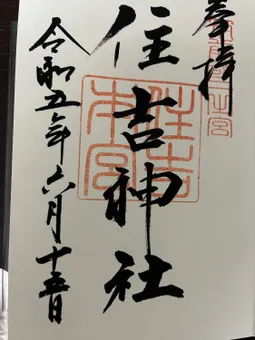 奉拝
住吉神社
令和五年六月十五日
住吉本宮